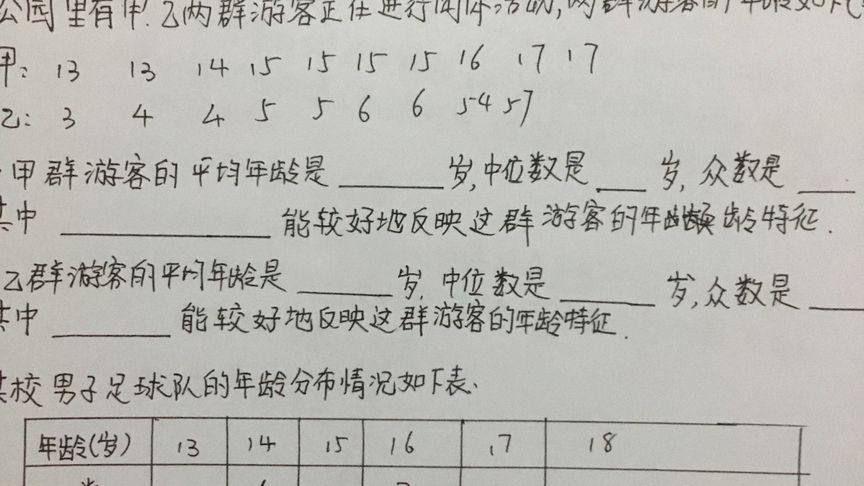 公园里有甲.乙两群游客正在进行团体活动,两群游客的年龄如下(
甲: 13 13 14 15 15 15 15 16 17 17
乙: 3 4 4 5 5 6 6 54 57
甲群游客的平均年龄是 ______ 岁,中位数是 ___ 岁, 众数是 ___
其中 ______ 能较好地反映这群游客的年龄特征.
乙群游客的平均年龄是 ______ 岁, 中位数是 ______ 岁,众数是 ___
其中 ______ 能较好地反映这群游客的年龄特征.
某校男子足球队的年龄分布情况如下表、
年龄(岁) 13 14 15 16 17 18